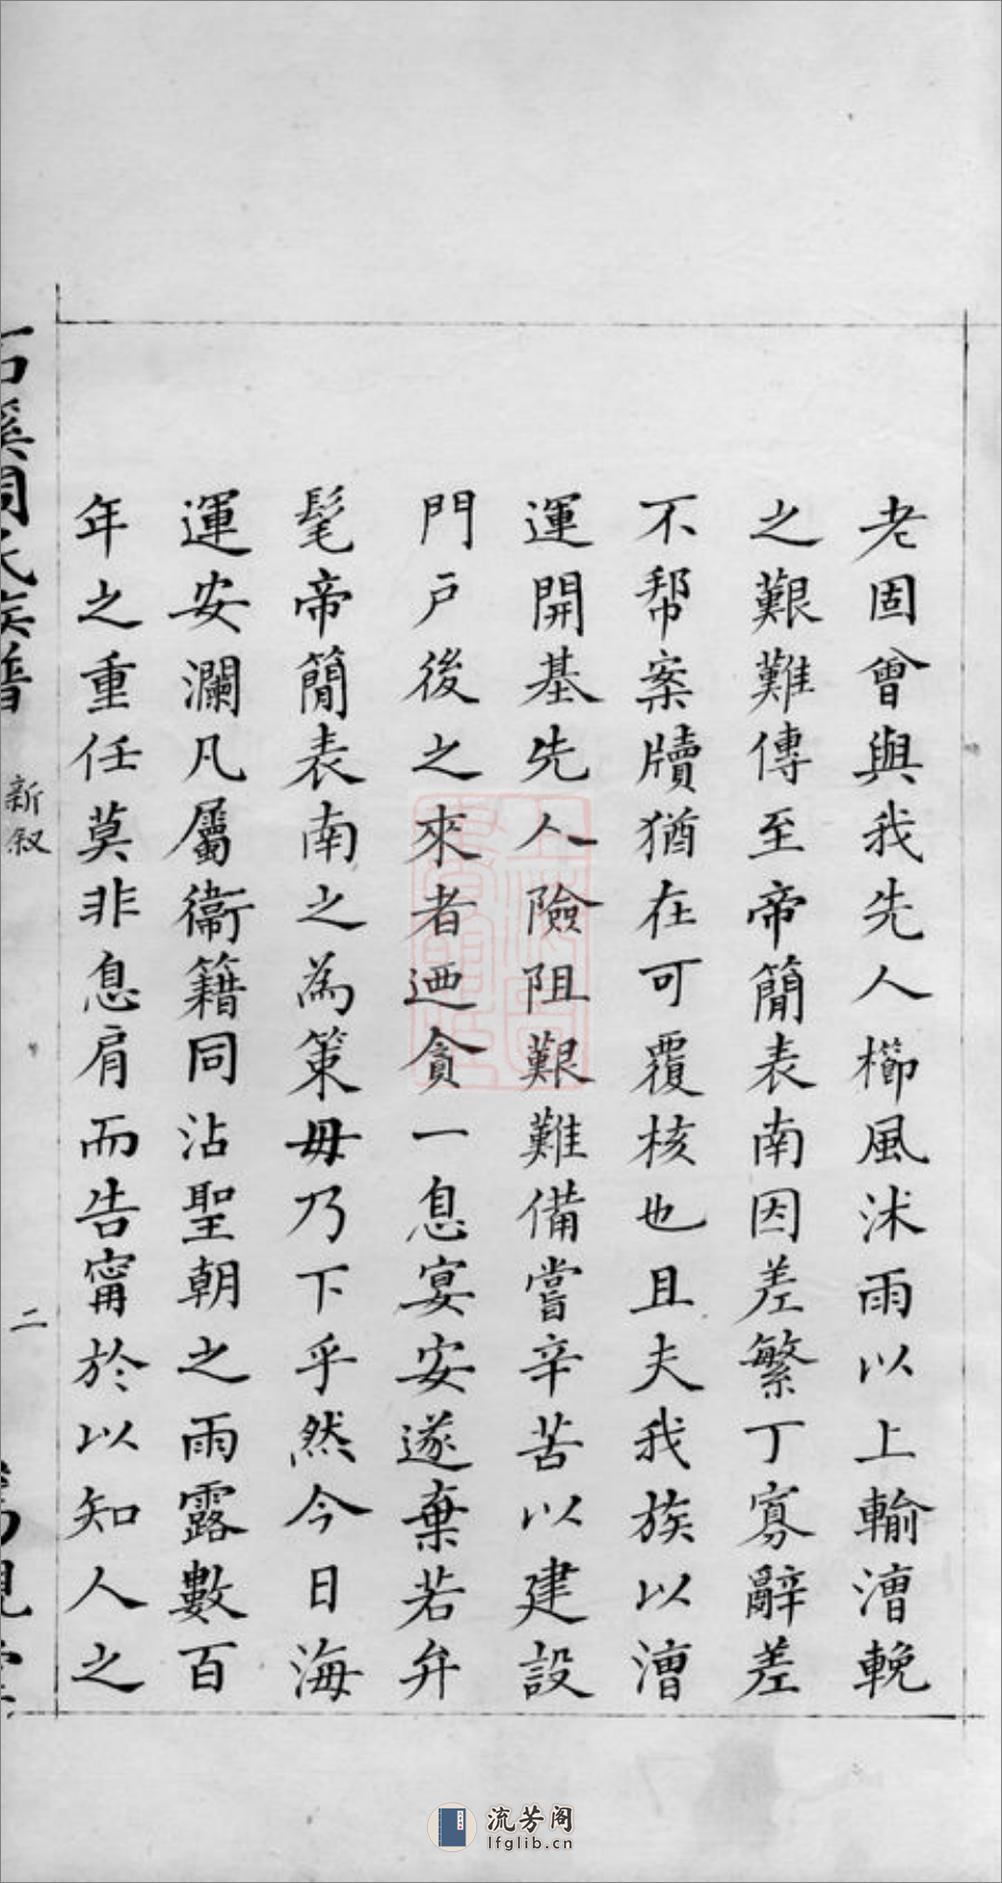 老固曾與我先人櫛風沭雨以上輸漕輓
之艱難傳至帝簡表南因差繁丁寡辭差
不幫案牘猶在可覆核也且夫我族以漕
運開基先人險阻艱難備嘗辛苦以建設
門戸後之來者迺貪一息宴安遂棄若弁
髦帝簡表南之為策毋乃下乎然今日海
運安瀾凡屬衞籍同沾聖朝之雨露數百
年之重任莫非息肩而告甯於以知人之
石溪周氏族譜
新叙
二
流芳阁
lfglib.cn